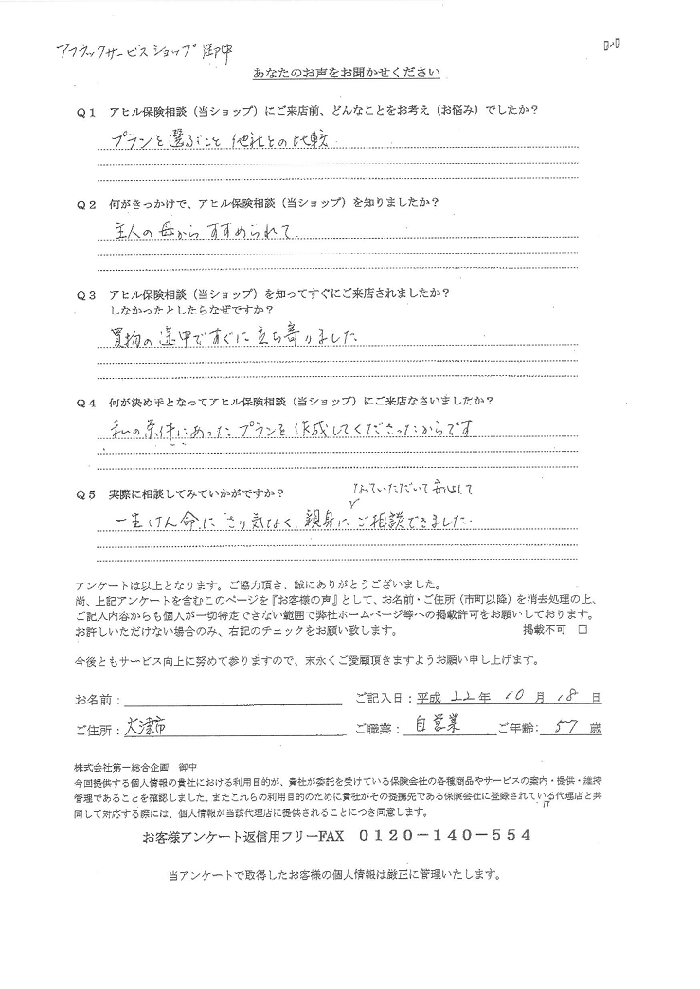 アフラックサービスショップ 御中
あなたのお声をお聞かせください
Q1 アヒル保険相談(当ショップ)にご来店前、どんなことをお考え(お悩み)でしたか?
プランを選ぶこと 他社との比較
Q2 何がきっかけで、アヒル保険相談(当ショップ)を知りましたか?
主人の母からすすめられて
Q3 アヒル保険相談(当ショップ)を知ってすぐにご来店されましたか?
しなかったとしたらなぜですか?
買物の途中ですぐに立ち寄りました
Q4 何が決め手となってアヒル保険相談(当ショップ)にご来店なさいましたか?
私の条件にあったプランを作成してくださったからです
Q5 実際に相談してみていかがですか?
していただいて安心して
一生けん命に さり気なく 親身に ご相談できました.
アンケートは以上となります。ご協力頂き、誠にありがとうございました。
尚、上記アンケートを含むこのページを『お客様の声』として、お名前・ご住所(市町以降)を消去処理の上、
ご記入内容からも個人が一切特定できない範囲で弊社ホームページ等への掲載許可をお願いしております。
お許しいただけない場合のみ、右記のチェックをお願い致します。 掲載不可 □
今後ともサービス向上に努めて参りますので、末永くご愛顧頂きますようお願い申し上げます。
お名前: ご記入日:平成 22年 10月 18日
ご住所:大津市 ご職業:自営業 ご年齢:57歳
株式会社第一総合企画 御中
今回提供する個人情報の貴社における利用目的が、貴社が委託を受けている保険会社の各種商品やサービスの案内・提供・維持
管理であることを確認しました。またこれらの利用目的のために貴社がその提携先である保険会社に登録されている代理店と共
同して対応する際には、個人情報が当該代理店に提供されることにつき同意します。
お客様アンケート返信用フリーFAX 0120-140-554
当アンケートで取得したお客様の個人情報は厳正に管理いたします。